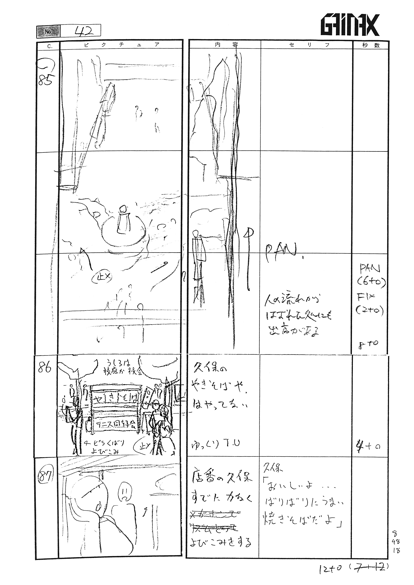 No. 42
GAINAX
C.
ピクチュア
内容
セリフ
秒数
85
止メ
PAN.
人の流れから
はずれた処にも
出店がある
PAN
(6+0)
FIX
(2+0)
8+0
86
うしろは
校庭か校舎
やきそば
テニス同好会
どうくばり
よびこみ
止メ
久保の
やきそばや、
はやってない
ゆっくりT.U
4+0
87
店番の久保
すでた力なく
よびこみをする
久保
「おいしいよ…
ばりばりにうまい
焼きそばだよ」
12+0 (7+12)